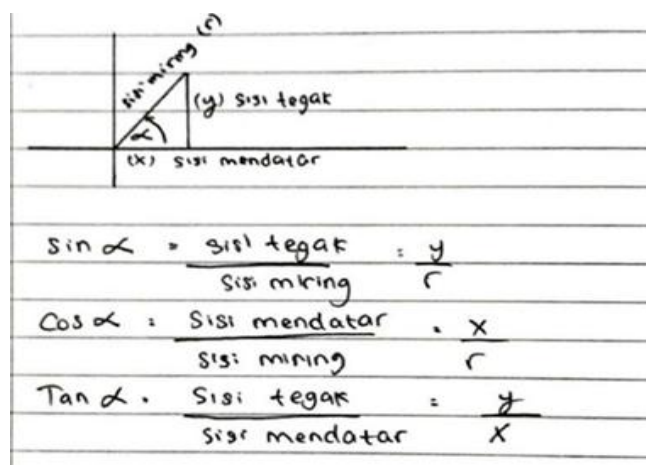 sisi miring (r)
(y) sisi tegak
α
(x) sisi mendatar
sin α = sisi tegak = y
sisi miring r
Cos α = Sisi mendatar = x
sisi miring r
Tan α = Sisi tegak = y
sisi mendatar x